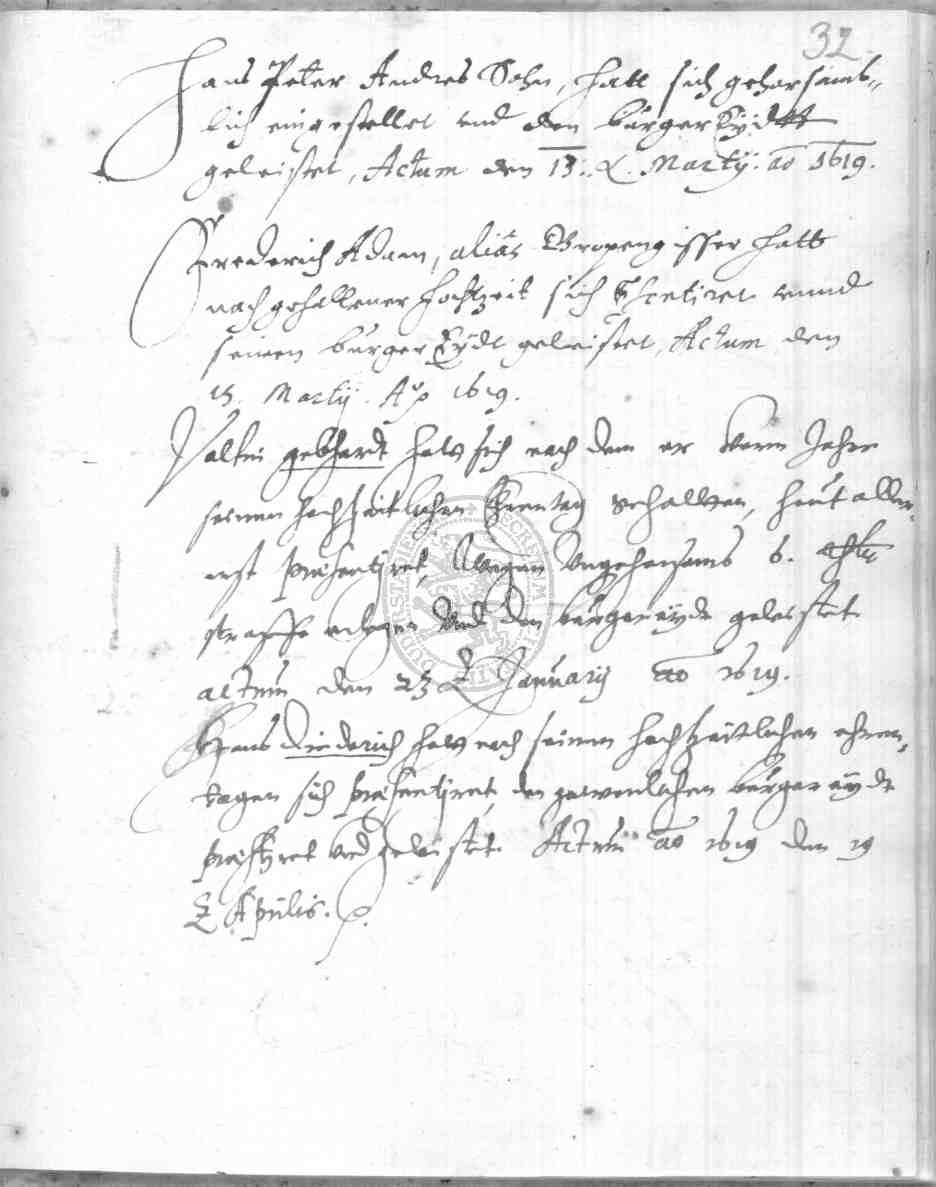 32
Hans Peter Andres Sohn, hatt sich gehorsamb-
lich eingestellet und den bürger Eydtt
geleistet, Actum den 13. Martÿ. ao 1619.
Frederich Adam, alias hatt
nach gehaltener hochzeit sich unnd
seinen bürger Eydt geleistet, Actum den
13. Martÿ. Ao 1619.
Valtin gebhardt hatt sich nach dem er Jahr
seinen hochzeitlichen Ehrentag gehalten, heut aller-
erst præsentiret, Wegen Ungehorsams 6.
straffe erleget Und den bürgereydt geleistet
actum den 23 Januarÿ ao 1619.
Hans Diederich hatt nach seinen hochzeitlichen ehren-
tagen sich præsentiret, den gewonlichen bürgereydt
præstiret und geleistet. Actum ao 1619 den 19
Aprilis.
SECRETUM